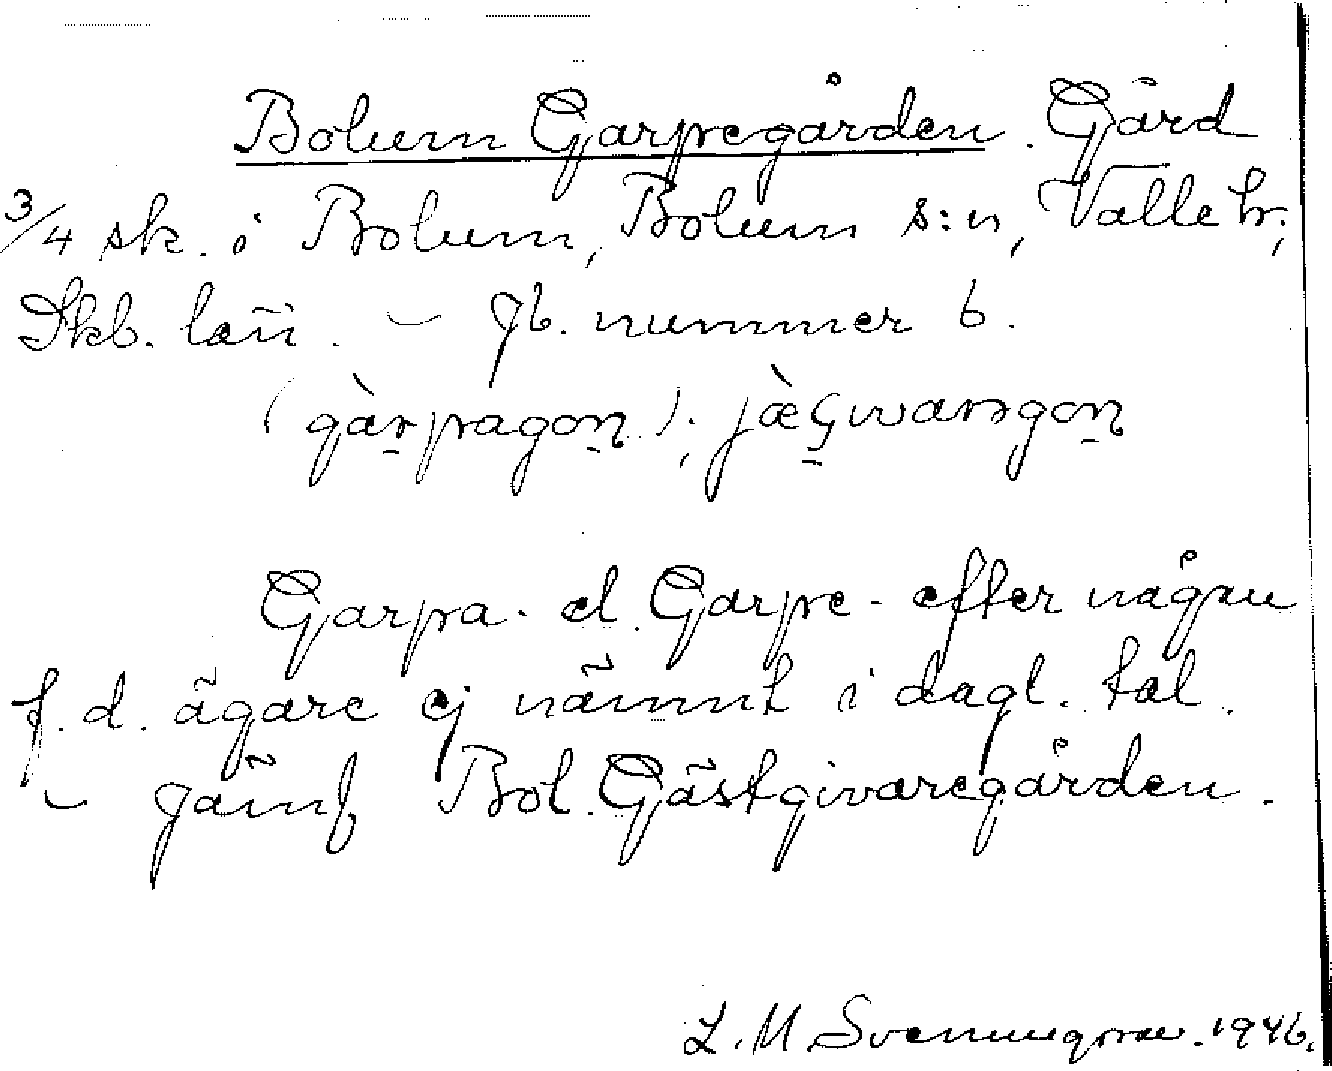 Bolum Garpegården. Gård
3/4 sk. i Bolum, Bolum s:n, Valle hr;
Skb. län. – Jb. nummer 6.
(gàrpagon); jæ̀ʂwarəgon
Garpa- el. Garpe- efter någon
f.d. ägare ej nämnt i dagl. tal.
– Jämf Bol. Gästgivaregården.
L. M. Svenungsson. 1946.